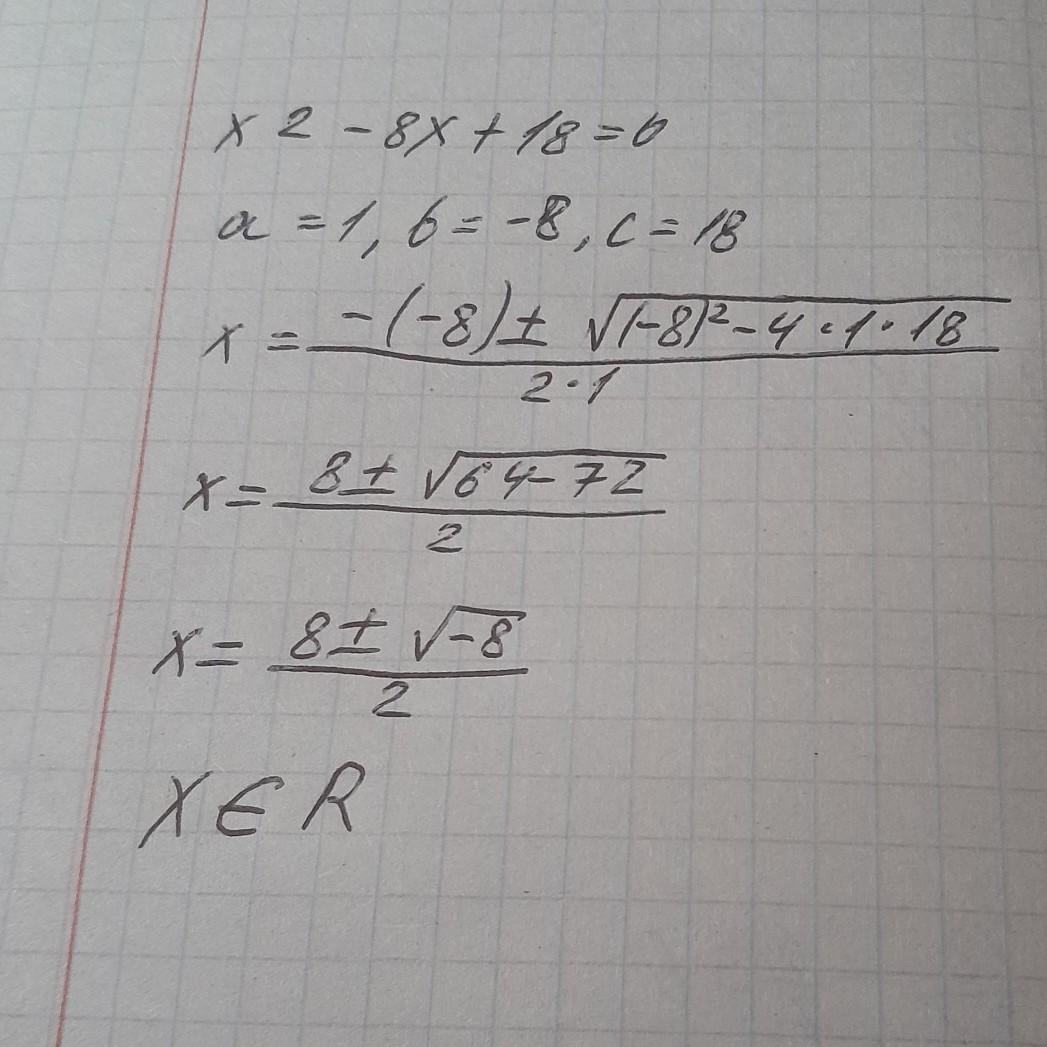 x 2 - 8x + 18 = 0
a = 1, b = -8, c = 18
x = \frac{-(-8) ± \sqrt{(-8)^2 - 4 · 1 · 18}}{2 · 1}
x = \frac{8 ± \sqrt{64 - 72}}{2}
x = \frac{8 ± \sqrt{-8}}{2}
X ∈ R